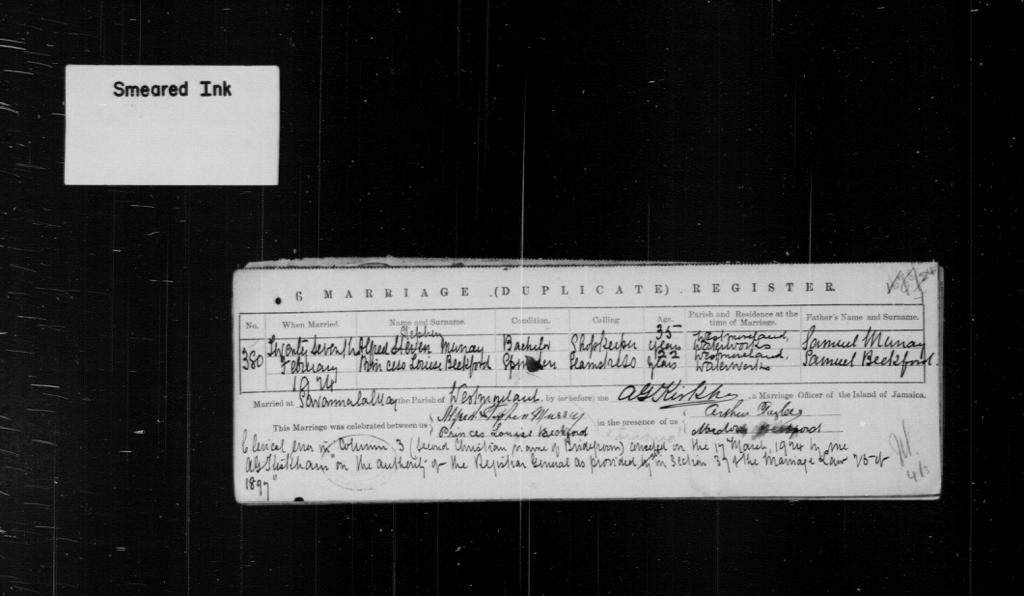 Smeared Ink
6 MARRIAGE (DUPLICATE) REGISTER.
No. When Married. Name and Surname. Condition. Calling Age. Parish and Residence at the time of Marriage. Father's Name and Surname.
Stephen 35
Twenty seventh Alfred Steven Murray Bachelor Shopkeeper years Westmoreland, Waterworks Samuel Murray
380 February Princess Louise Beckford Spinster Seamstress 22 years Westmoreland, Waterworks Samuel Beckford
1924
Married at Savannalamar the Parish of Westmoreland by (or before) me , a Marriage Officer of the Island of Jamaica.
Alfred Stephen Murray Arthur
This Marriage was celebrated between us in the presence of us
Princess Louise Beckford
Clerical error in Column 3 (second Christian name of Bridegroom) corrected on the 17 March, 1924 by me
on the authority of the Registrar General as provided by in Section 37 of the Marriage Law 25 of
1897"
4/3